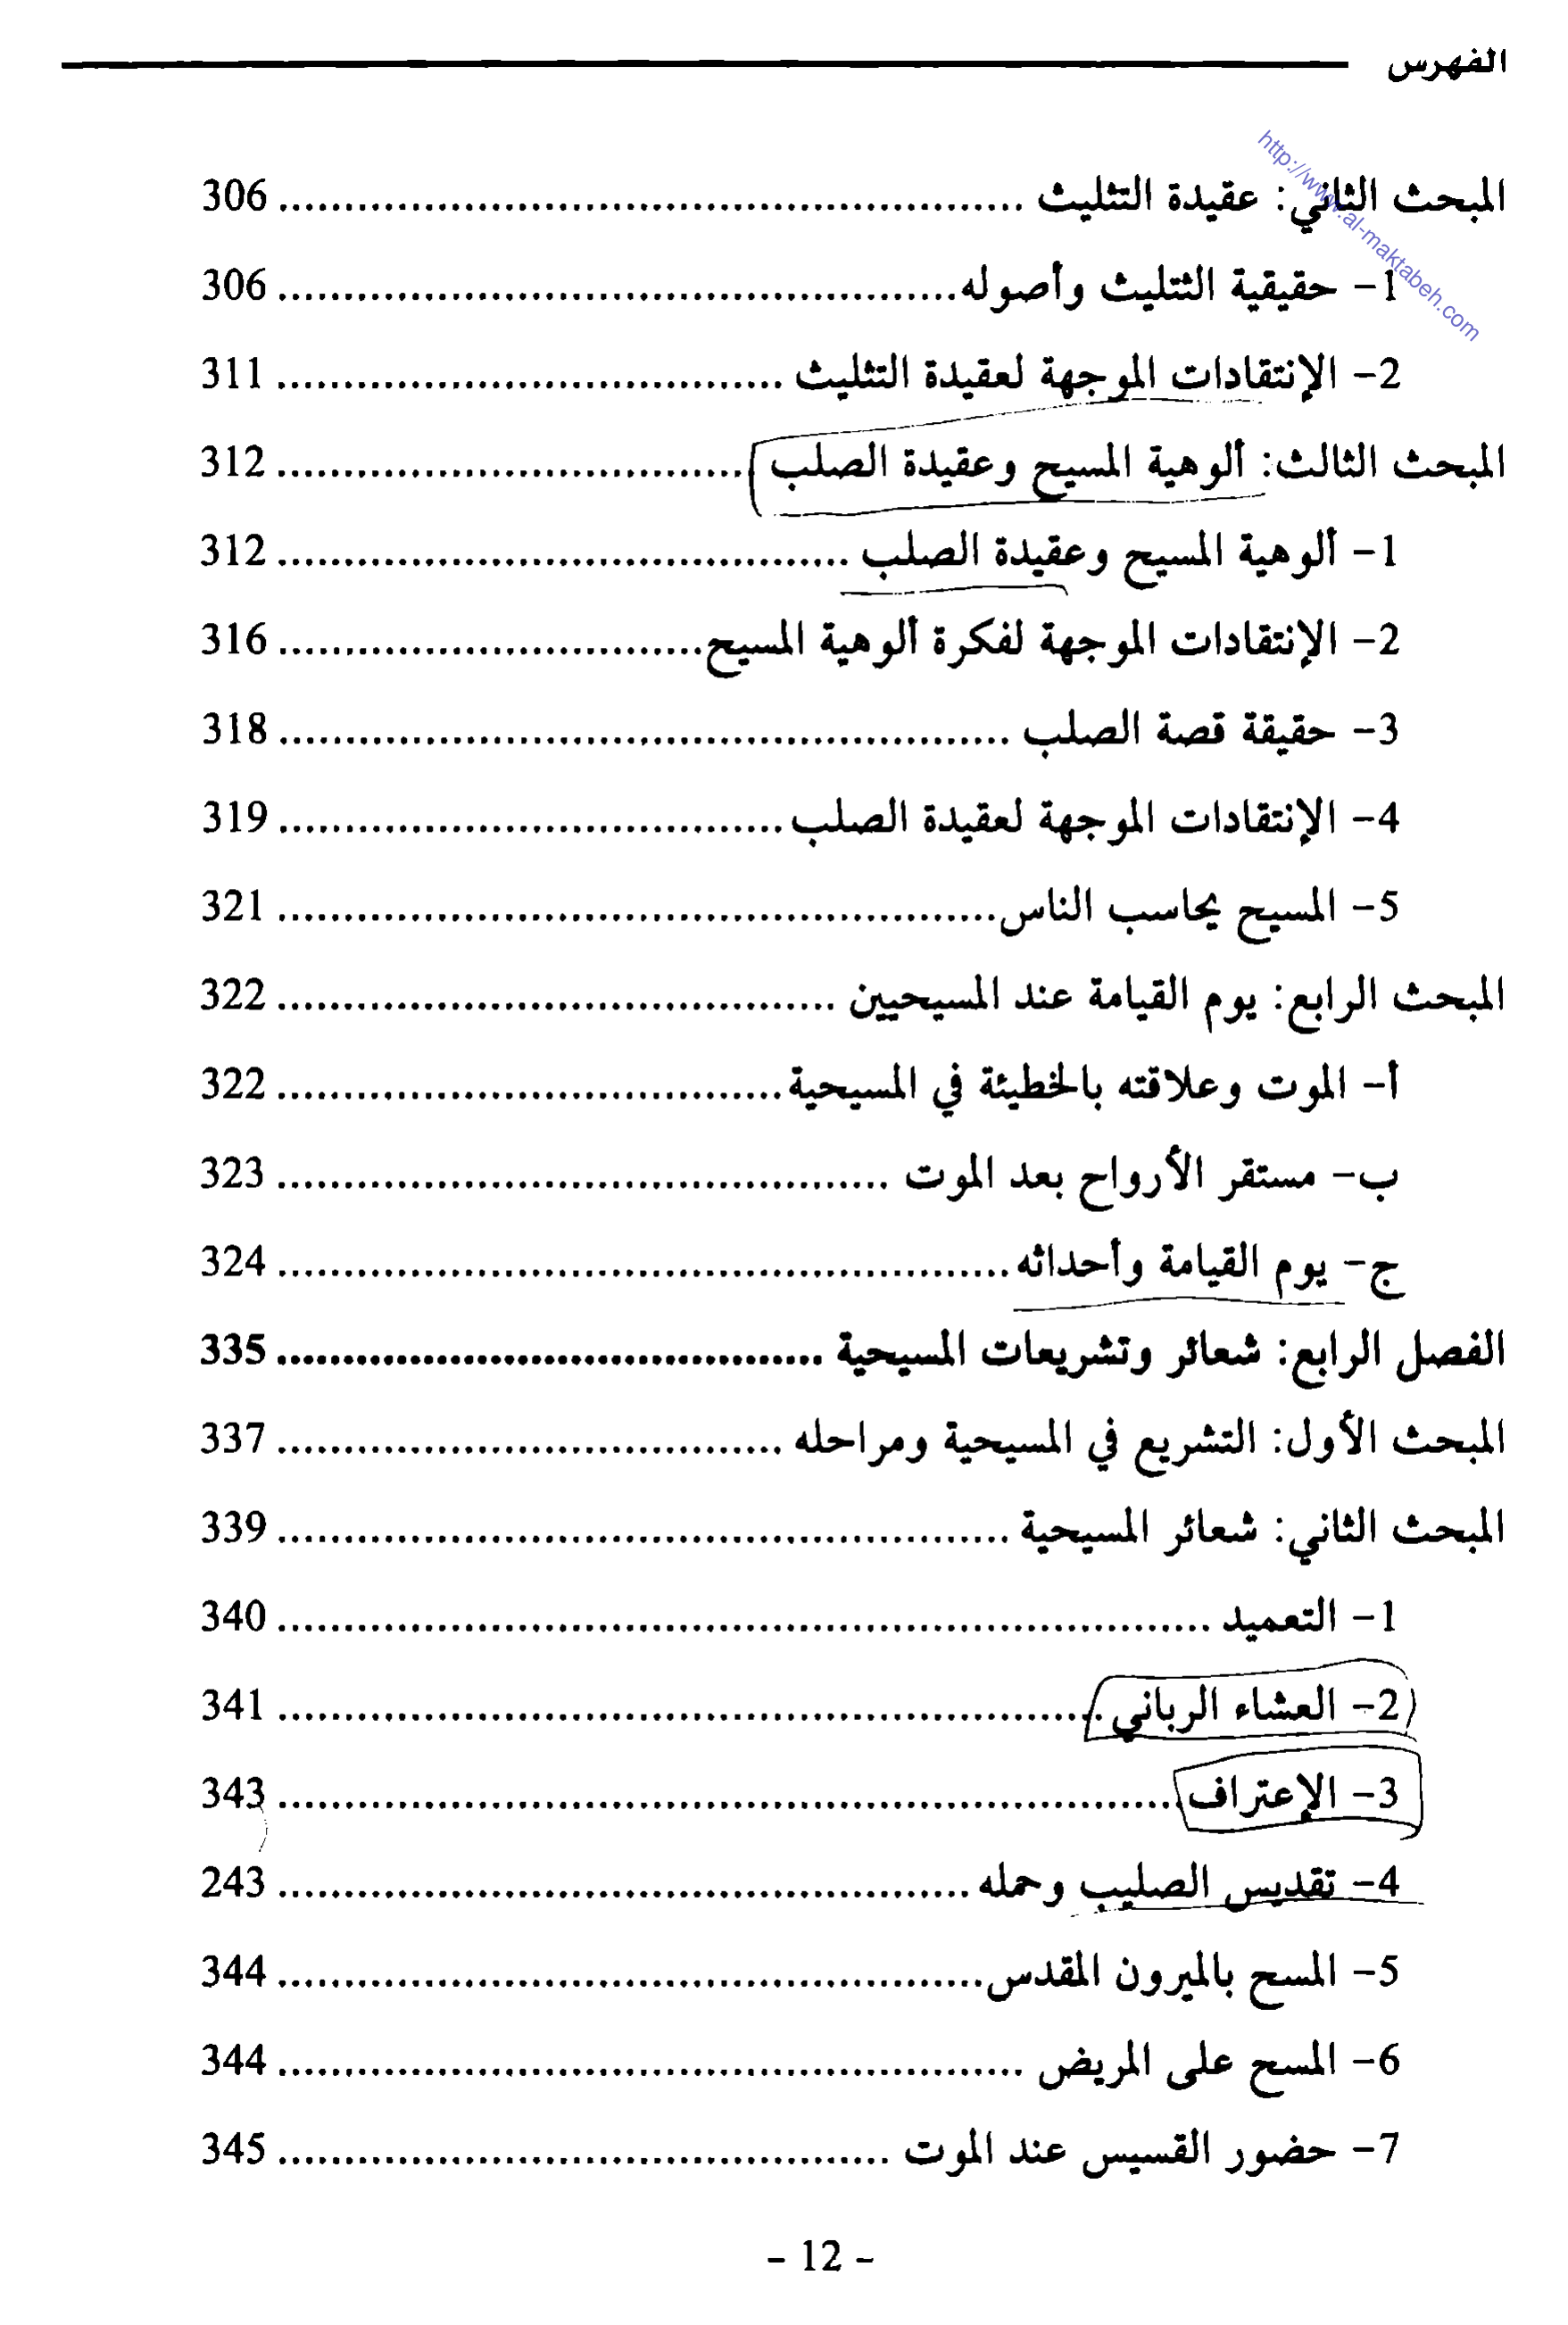 الفهرس
http://www.al-maktabeh.com
المبحث الثاني: عقيدة التثليث ........................................................ 306
1- حقيقية الثتليث وأصوله ................................................... 306
2- الإنتقادات الموجهة لعقيدة التثليث ...................................... 311
المبحث الثالث: ألوهية المسيح وعقيدة الصلب ................................... 312
1- ألوهية المسيح وعقيدة الصلب ........................................... 312
2- الإنتقادات الموجهة لفكرة ألوهية المسيح ................................ 316
3- حقيقة قصة الصلب ....................................................... 318
4- الإنتقادات الموجهة لعقيدة الصلب ...................................... 319
5- المسيح يحاسب الناس ...................................................... 321
المبحث الرابع: يوم القيامة عند المسيحيين .......................................... 322
أ- الموت وعلاقته بالخطيئة في المسيحية ...................................... 322
ب- مستقر الأرواح بعد الموت .............................................. 323
ج- يوم القيامة وأحداثه ....................................................... 324
الفصل الرابع: شعائر وتشريعات المسيحية ......................................... 335
المبحث الأول: التشريع في المسيحية ومراحله ...................................... 337
المبحث الثاني: شعائر المسيحية ....................................................... 339
1- التعميد ...................................................................... 340
2- العشاء الرباني .............................................................. 341
3- الإعتراف ................................................................... 343
4- تقديس الصليب وحمله .................................................... 243
5- المسح بالميرون المقدس ..................................................... 344
6- المسح على المريض ........................................................ 344
7- حضور القسيس عند الموت .............................................. 345
- 12 -